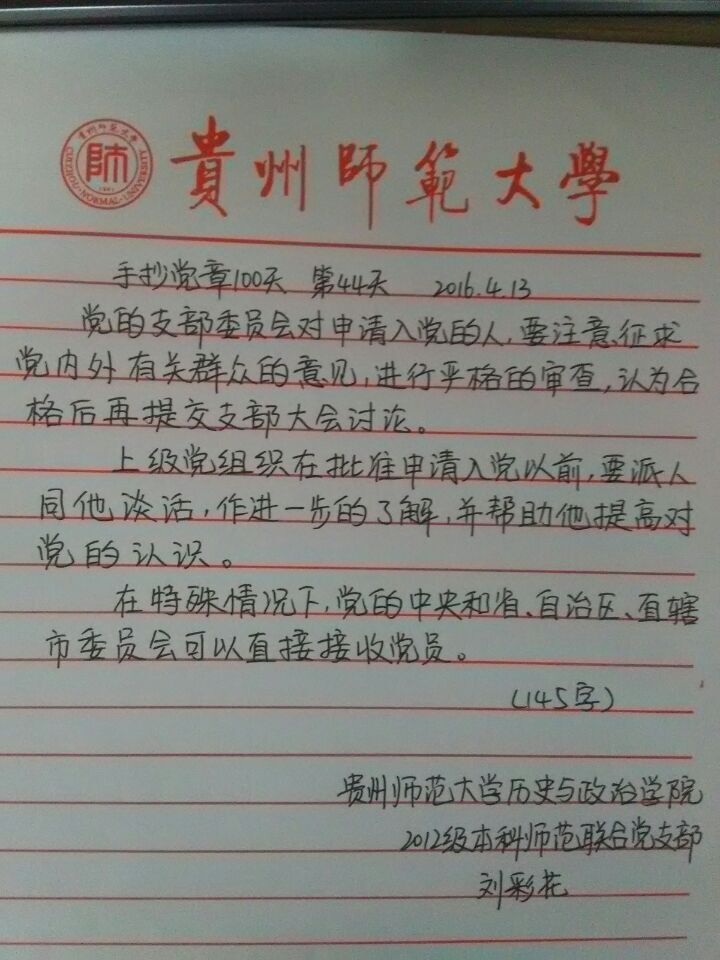 貴州師範大學
貴州师范大学
師
1941
GUIZHOU NORMAL UNIVERSITY
手抄党章100天 第44天 2016.4.13
党的支部委员会对申请入党的人，要注意征求
党内外有关群众的意见，进行严格的审查，认为合
格后再提交支部大会讨论。
上级党组织在批准申请入党以前，要派人
同他谈话，作进一步的了解，并帮助他提高对
党的认识。
在特殊情况下，党的中央和省、自治区、直辖
市委员会可以直接接收党员。
（145字）
贵州师范大学历史与政治学院
2012级本科师范联合党支部
刘彩花